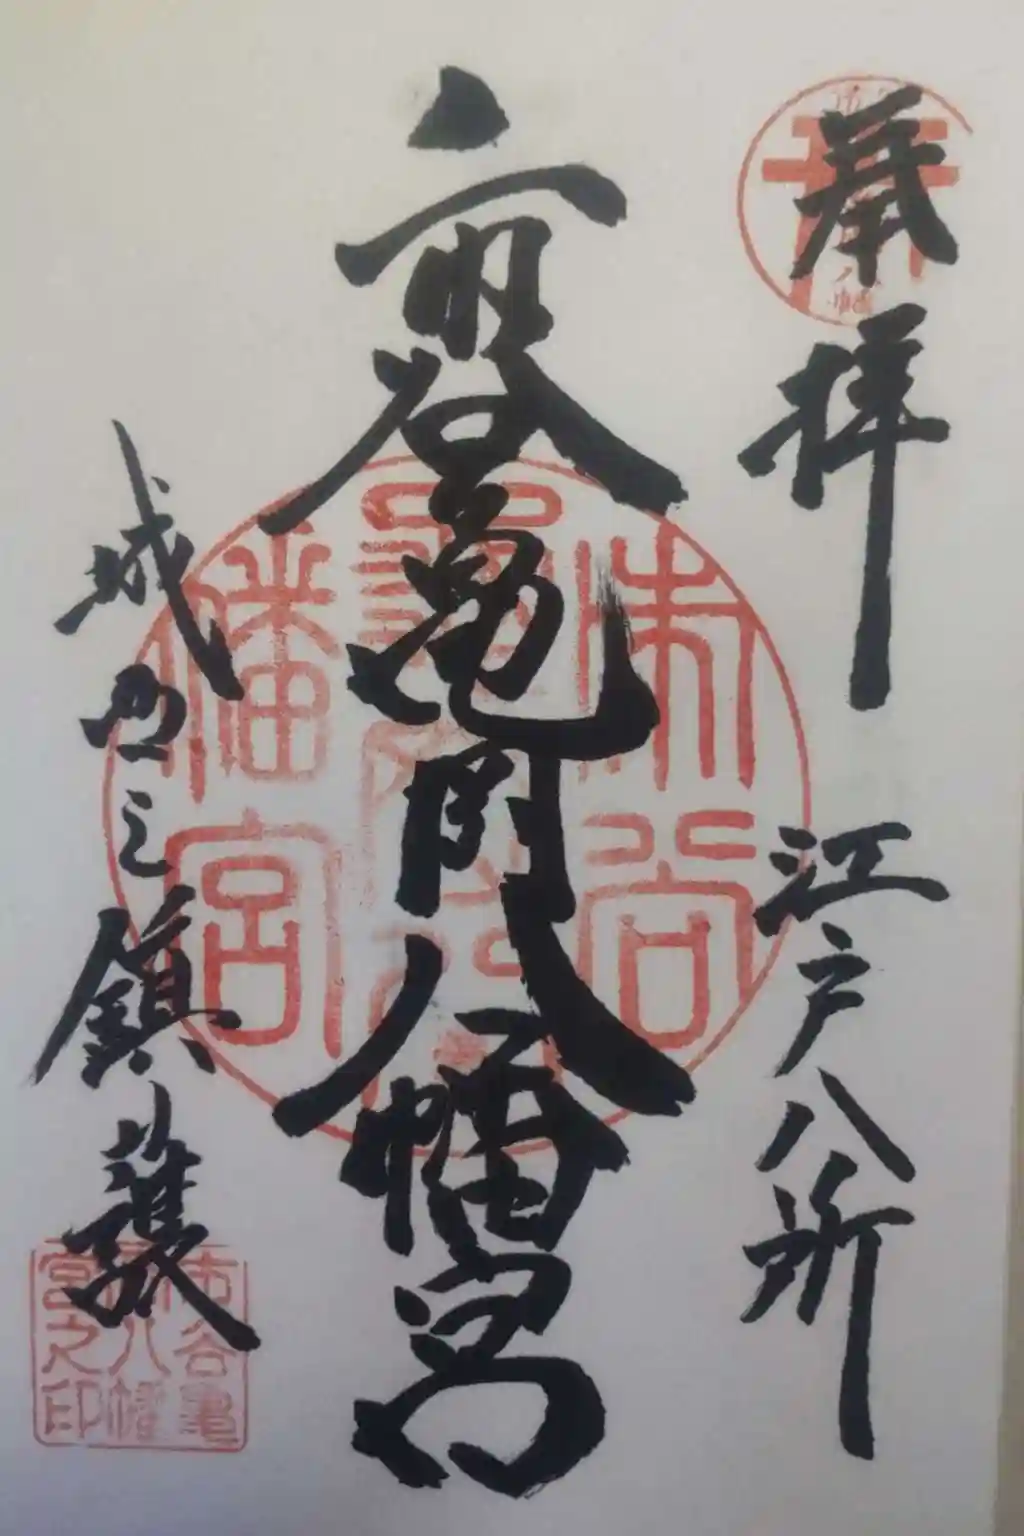 奉拝 江戸八所
市谷亀岡八幡宮
城西之鎮護
市谷
亀岡八
幡宮
市谷亀
岡八幡
宮之印